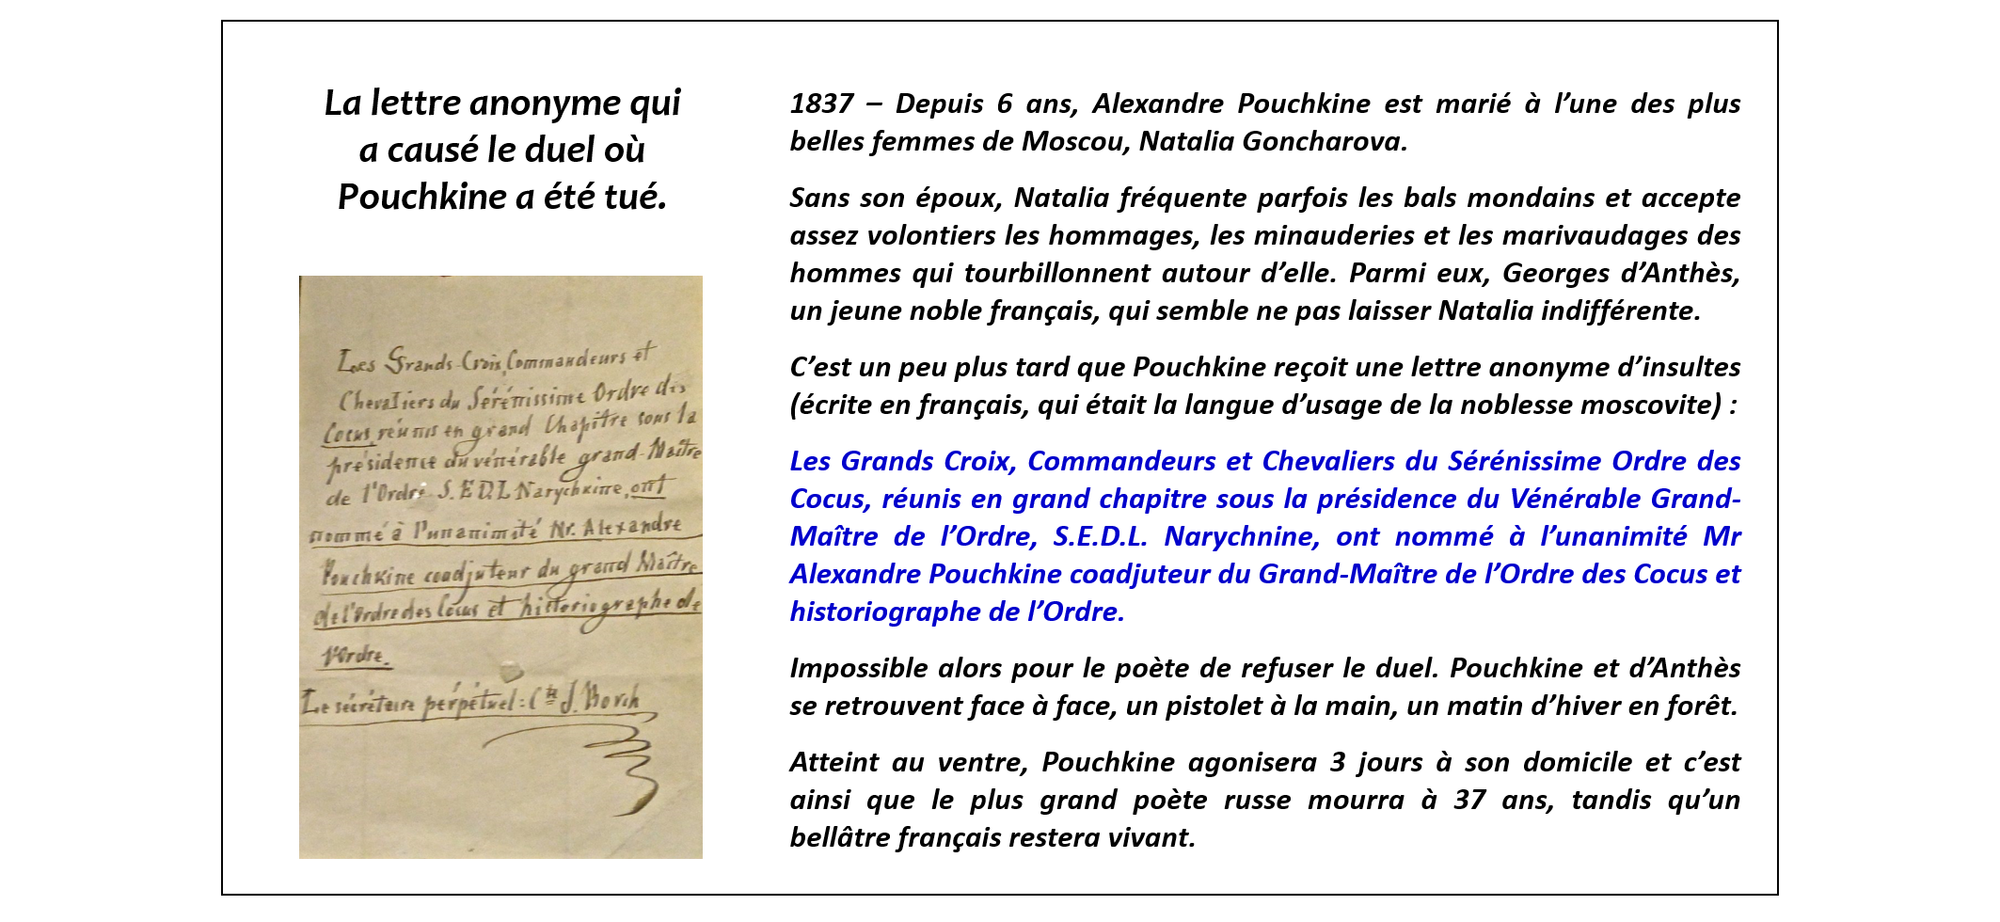 La lettre anonyme qui
a causé le duel où
Pouchkine a été tué.
Les Grands-Croix, Commandeurs et
Chevaliers du Sérénissime Ordre des
Cocus, réunis en grand Chapître sous la
présidence du vénérable grand-Maître
de l'Ordre S.E.D.L Narychkine, ont
nommé à l'unanimité Mr. Alexandre
Pouchkine coadjuteur du grand Maître
de l'Ordre des Cocus et historiographe de
l'Ordre.
Le sécrétaire perpétuel: Cte J. Borch
1837 – Depuis 6 ans, Alexandre Pouchkine est marié à l’une des plus
belles femmes de Moscou, Natalia Goncharova.
Sans son époux, Natalia fréquente parfois les bals mondains et accepte
assez volontiers les hommages, les minauderies et les marivaudages des
hommes qui tourbillonnent autour d’elle. Parmi eux, Georges d’Anthès,
un jeune noble français, qui semble ne pas laisser Natalia indifférente.
C’est un peu plus tard que Pouchkine reçoit une lettre anonyme d’insultes
(écrite en français, qui était la langue d’usage de la noblesse moscovite) :
Les Grands Croix, Commandeurs et Chevaliers du Sérénissime Ordre des
Cocus, réunis en grand chapitre sous la présidence du Vénérable Grand-
Maître de l’Ordre, S.E.D.L. Narychnine, ont nommé à l’unanimité Mr
Alexandre Pouchkine coadjuteur du Grand-Maître de l’Ordre des Cocus et
historiographe de l’Ordre.
Impossible alors pour le poète de refuser le duel. Pouchkine et d’Anthès
se retrouvent face à face, un pistolet à la main, un matin d’hiver en forêt.
Atteint au ventre, Pouchkine agonisera 3 jours à son domicile et c’est
ainsi que le plus grand poète russe mourra à 37 ans, tandis qu’un
bellâtre français restera vivant.